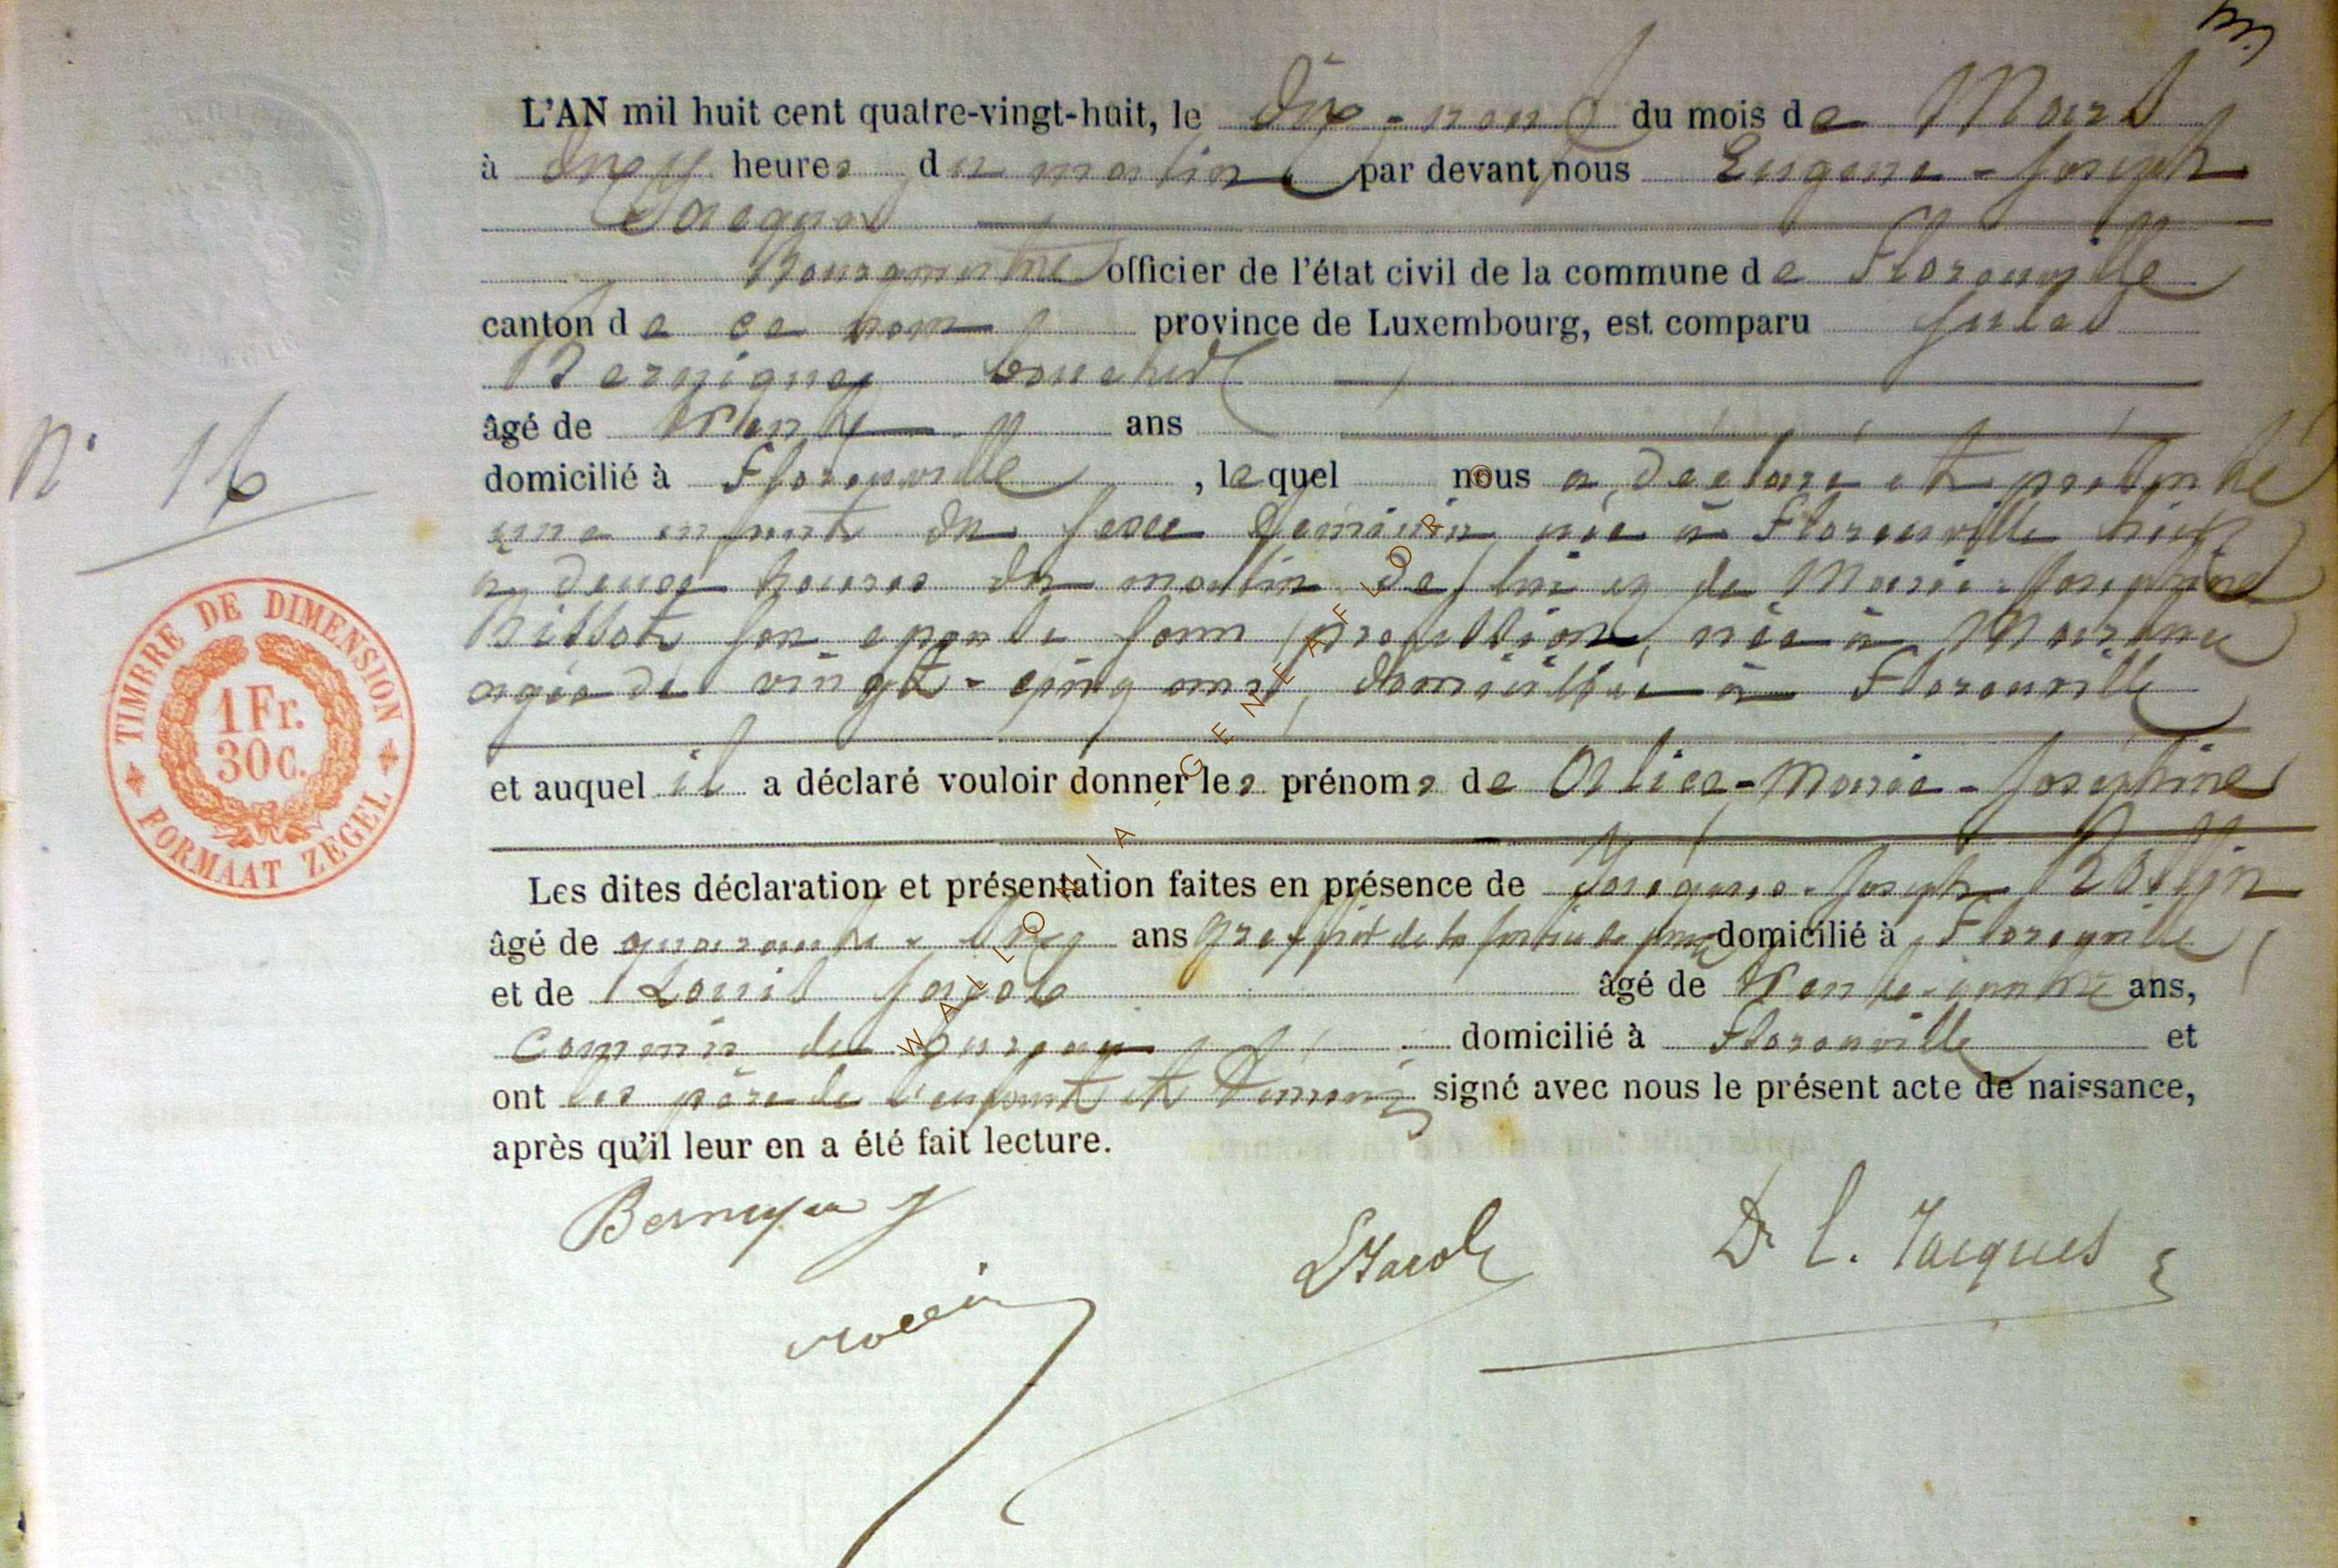 L'AN mil huit cent quatre-vingt-huit, le dix-neuf du mois de Mars
à onze heures du matin par devant nous Eugène-Joseph
Jacques
Bourgmestre officier de l'état civil de la commune de Florenville
canton de ce nom province de Luxembourg, est comparu Jules
Bernigaud
âgé de trente ans
domicilié à Florenville, lequel nous a déclaré et présenté
une enfant du sexe féminin née à Florenville hier
à deux heures du matin de lui et de Marie-Joséphine
son épouse sans profession, née à
âgée de vingt-cinq ans, domiciliée à Florenville
et auquel il a déclaré vouloir donner les prénoms de Alice-Marie-Joséphine
Les dites déclaration et présentation faites en présence de Joseph Rollin
âgé de quarante- ans greffier de la justice de paix domicilié à Florenville
et de Louis Jacob âgé de trente-quatre ans,
commis de bureau domicilié à Florenville et
ont les père de l'enfant et témoins signé avec nous le présent acte de naissance,
après qu'il leur en a été fait lecture.
N° 16
TIMBRE DE DIMENSION
1 Fr.
30 c.
FORMAAT ZEGEL
WALLONIA - GENEAFLOR ©
Rollin
L Jacob
Dr E. Jacques